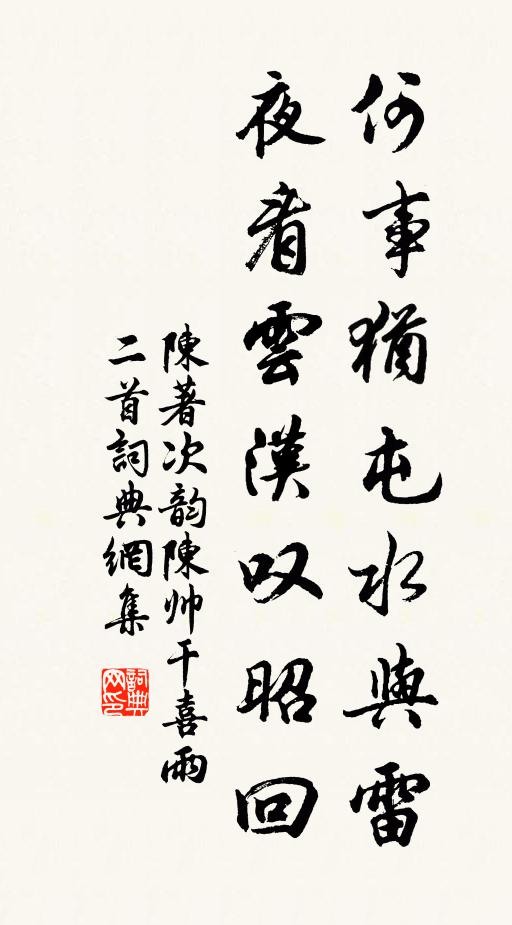 何事猶屯水與雷
夜看雲漢叹昭回
陳著次韵陳帅干喜雨
二首詞典網集
詞典网印